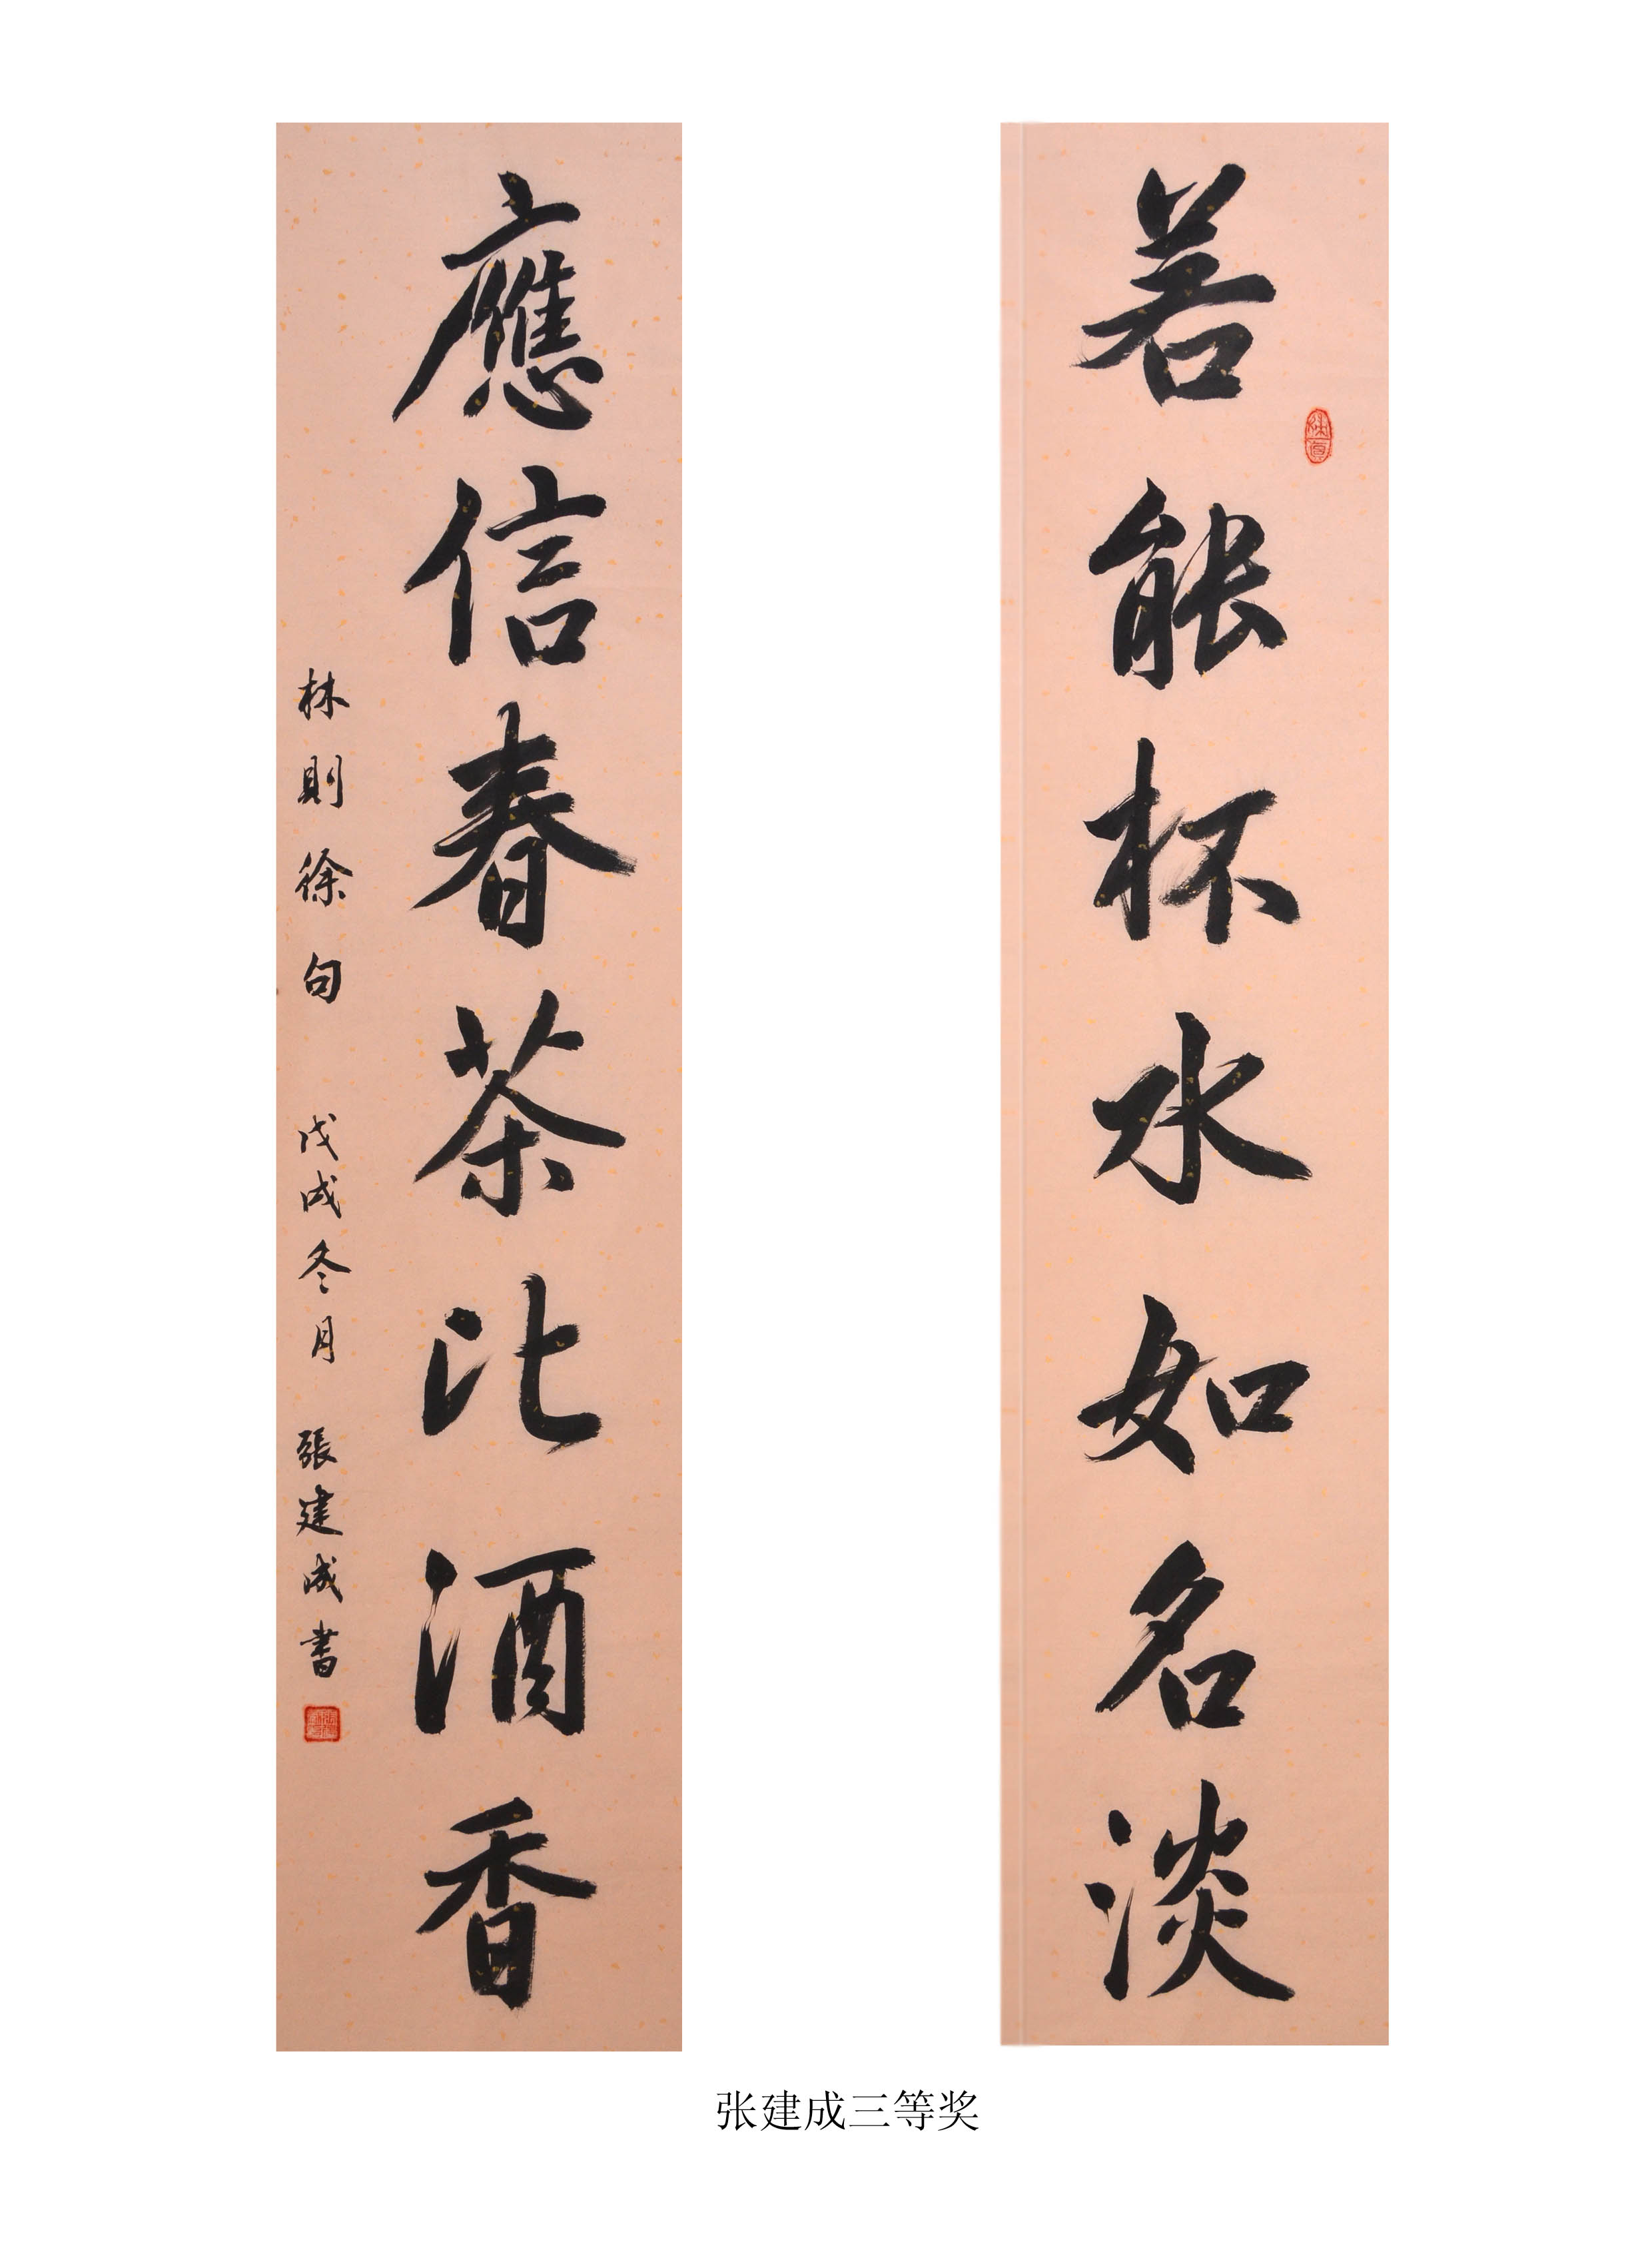 若能杯水如名淡
應信春茶比酒香
林則徐句 戊戌冬月 張建成書
张建成三等奖